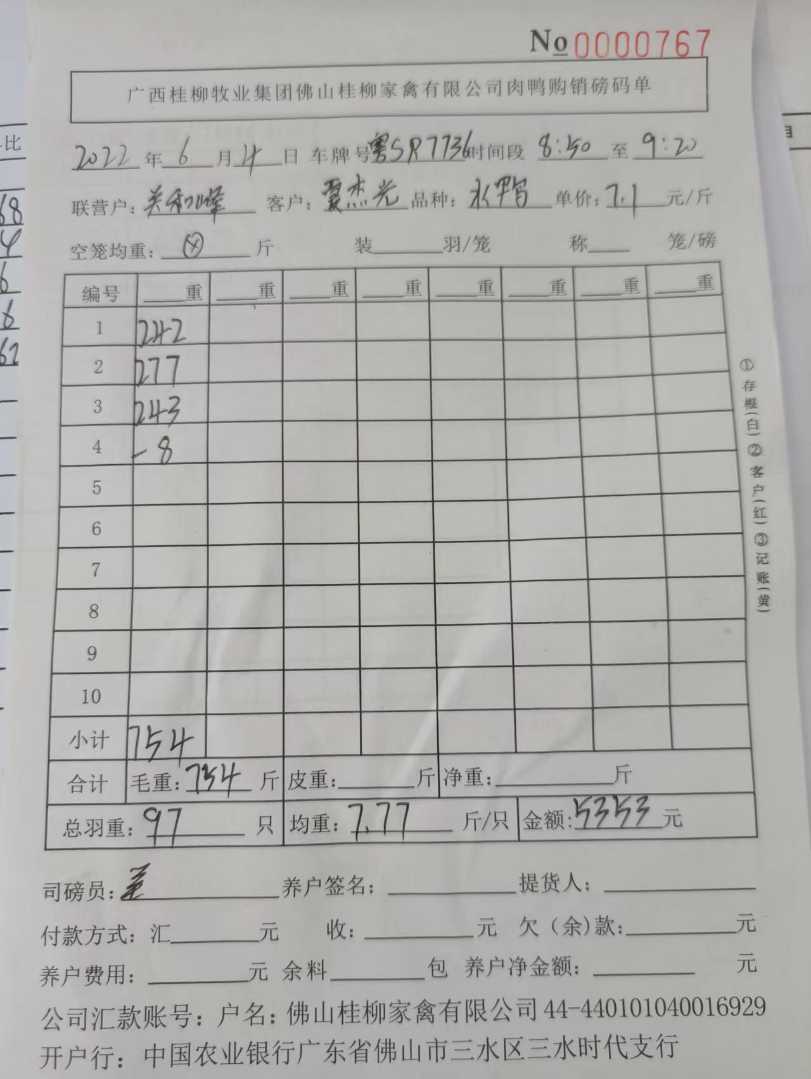 No 0000767
广西桂柳牧业集团佛山桂柳家禽有限公司肉鸭购销磅码单
2022 年 6 月 4 日 车牌号 粤SR7736 时间段 8:50 至 9:20
联营户: 关和峰 客户: 杰光 品种: 水鸭 单价: 7.1 元/斤
空笼均重: 斤 装 羽/笼 称 笼/磅
编号 重 重 重 重 重 重 重 重
1 242
2 277
3 243
4 -8
5
6
7
8
9
10
小计 754
合计 毛重: 754 斤 皮重: 斤 净重: 斤
总羽重: 97 只 均重: 7.77 斤/只 金额: 5353 元
司磅员: 养户签名: 提货人:
付款方式: 汇 元 收: 元 欠(余)款: 元
养户费用: 元 余料 包 养户净金额: 元
公司汇款账号: 户名: 佛山桂柳家禽有限公司 44-440101040016929
开户行: 中国农业银行广东省佛山市三水区三水时代支行
①存根(白)②客户(红)③记账(黄)
比
68
4
6
6